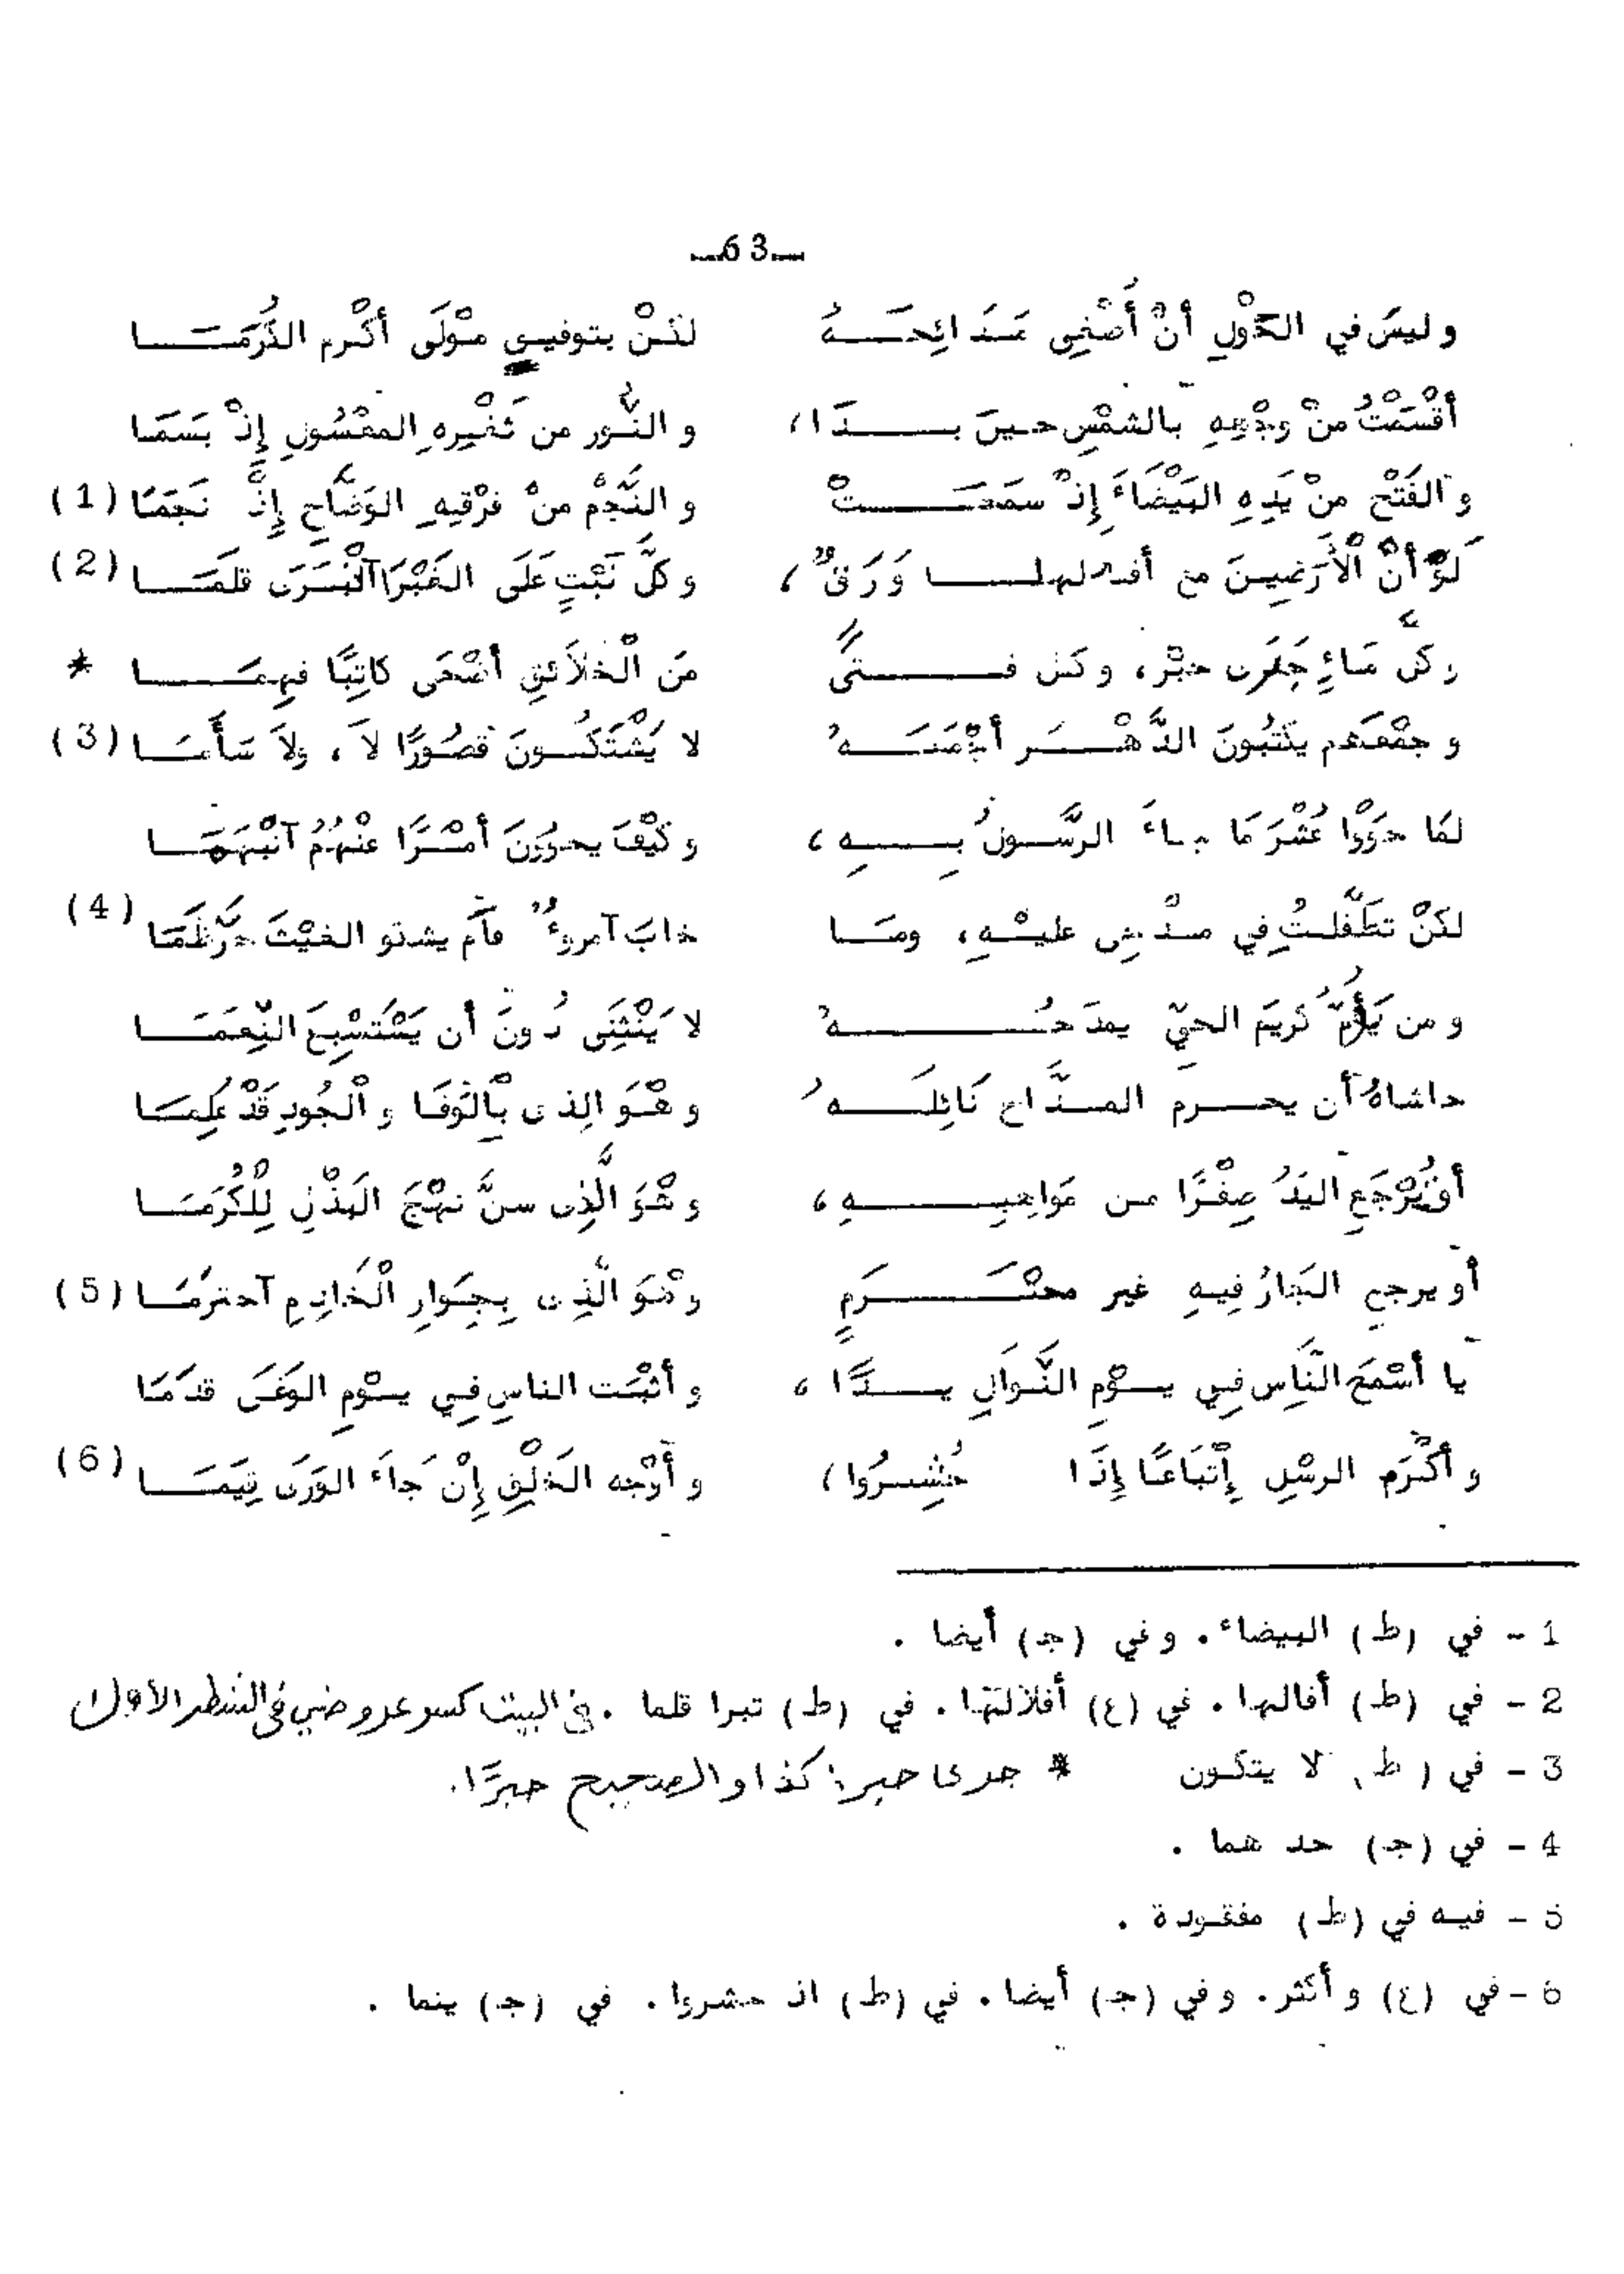 ـ63ـ
وليسَ في الحَوْلِ أَنْ أُصْغِى مَدَائِحَهُ لكنْ بتوفيـي مـوْلَى أكْرم الكُرَمَا
أقْسَمْتُ منْ وجْهِهِ بالشمْسِ حينَ بَدَا، و النُّور من ثَغْرِه المعْسُولِ إذْ بَسَمَا
و الفَتْح منْ يَدِهِ البَيْضَاءَ إذْ سمَحَتْ و النَّجْمُ منْ فرْقِهِ الوَضَّاحِ إِذْ نَجَمَا (1)
لَوْ أنَّ الْأَرَضِينَ مع لها وَرَقٌ، و كلَّ نَبْتٍ عَلَى الغَبْرَا قلمَا (2)
و كلّ مَاءٍ حبْر، و كل فتىً مَن الْخلاَئقِ أضْحَى كاتِبًا فهِمَا *
و جمْعَهم يكْتُبُونَ الدَّهْر أجْمَعَهُ لا يَشْتَكُونَ قصُورًا لاَ، ولاَ سَأَمَا (3)
لمَا حوَوْا عُشْرَ مَا جاءَ الرَّسُولُ بِهِ، و كيْفَ يحوُونَ أمْرًا عنْهُمُ آنْبَهَمَا
لكنْ تطَفَّلتُ في مدْحِى عليْهِ، ومَا خابَ آمروءٌ أَم يشدو الغيْثَ (4)
و من يَؤُمّ كَريمَ الحيّ يمدَحُهُ لا يَنْثَنِى دُونَ أن يَسْتَسْبِغَ النِّعَمَا
حاشاهُ أن يحرم المدَّاح نَائِلَهُ و هْوَ الذى بِالْوَفَا و الْجُودِ قَدْ عَلِمَا
أوْ تُرْجَعِ اليَدُ صِفْرًا من مَواهِبِهِ، و هْوَ الَّذِى سنَّ نهْجَ البذْلِ لِلْكُرَمَا
أو يرجع الجَارُ فِيهِ غير محتَرَمٍ و هْوَ الَّذِى بِجِوَارِ الْخَادِمِ آحترمَا (5)
يا أسْمَحَ النَّاسِ في يوْمِ النَّوَالِ يدًا، و أثْبَت الناسِ في يوْمِ الوَغَى قدَمَا
و أكْرَم الرسْلِ إِتْبَاعًا إِذَا حُشِرُوا، و أوْجه الخَلْقِ إنْ جاءَ الوَرَى قِيَمَا (6)
1 - في (ط) البيضاء. وفي (جـ) أيضا.
2 - في (ط) أفالها. في (ع) أفلالتها. في (ط) تبرا قلما. في البيت كسر عروضي في الشطر الأول
3 - في (ط) لا يتكون * جرى حبر: كذا والصحيح حبرًا.
4 - في (جـ) حد هما.
5 - فيه في (ط) مفقودة.
6 - في (ع) و أكثر. و في (جـ) أيضا. في (ط) اذ حشروا. في (جـ) ينما.